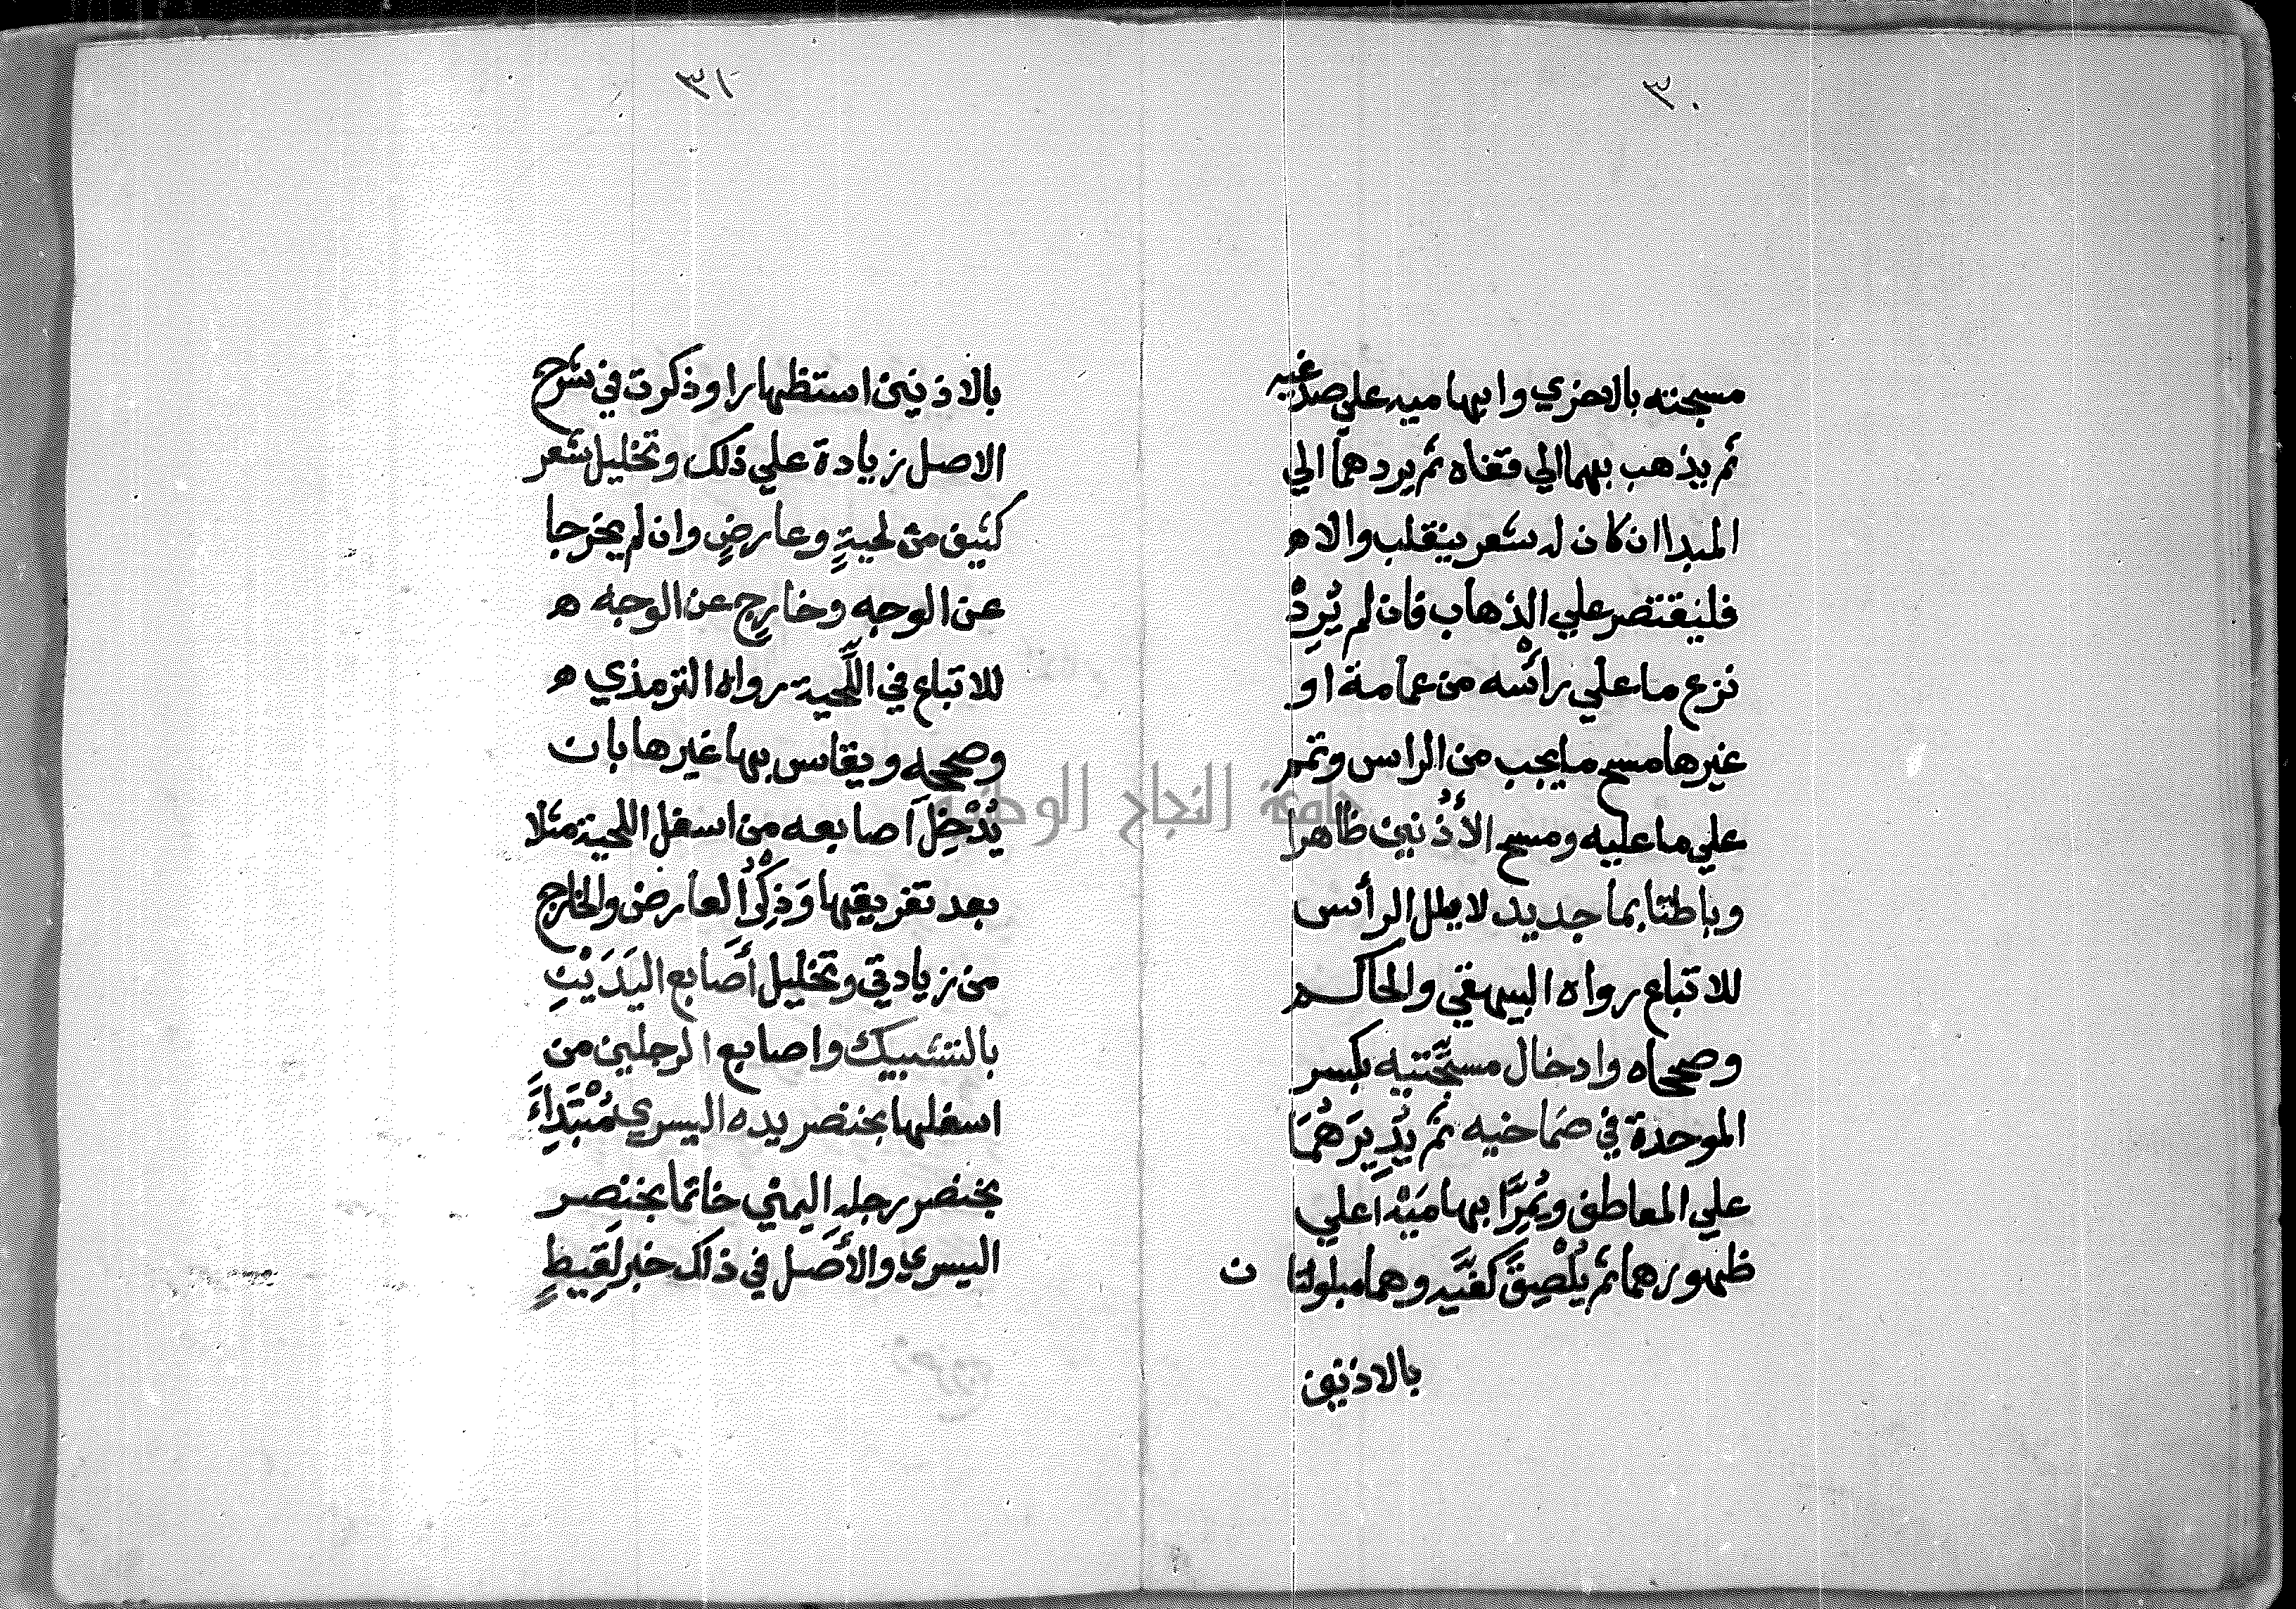 ٣٠
مسبحته بالاخري وابهاميه علي صدغيه
ثم يذهب بهما الي قفاه ثم يردهما الي
المبدا ان كان له شعر ينقلب والا ه
فليقتصر علي الذهاب فان لم يُرِدْ
نزع ما علي رأْسه من عمامة او
غيرها مسح ما يجب من الراس وتمم
علي ما عليه ومسح الأُذنين ظاهرا
وباطنا بما جديد لا بلل الرأس
للاتباع رواه البيهقي والحاكم
وصححاه وادخال مسبِّحتيه بكسر
الموحدة في صماخيه ثم يُدِيرَهُمَا
علي المعاطف ويُمِرَّ ابهامَيْه علي
ظهورهما ثم يُلْصِقَ كفَّيه وهما مبلولتان
بالاذنين
٣١
بالاذنين استظهارا وذكرت في شرح
الاصل زيادة علي ذلك وتخليل شعر
كثيف من لحيةٍ وعارضٍ وان لم يخرجا
عن الوجه وخارجٍ عن الوجه ه
للاتباع في اللِّحية رواه الترمذي ه
وصححه ويقاس بها غيرها بان
يُدْخِلَ اصابعه من اسفل اللحية مثلا
بعد تفريقها وَذِكْرُ العارض والخارج
من زيادتي وتخليل أَصَابع اليَدَيْنِ
بالتشبيك واصابع الرجلين من
اسفلها بخنصر يده اليسري مُبْتَدِاءً
بخنصر رجله اليمني خاتما بخنصر
اليسري والأَصل في ذلك خبر لَقِيطٍ
جامعة النجاح الوطنية